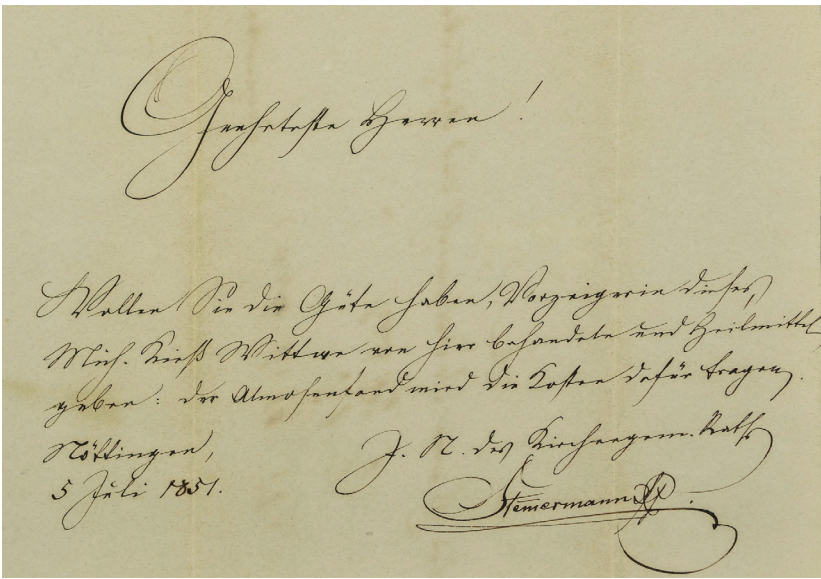 Geehrteste Herren!
Wollen Sie die Güte haben, Vorzeigerin dieses,
Mich. Kieß Wittwe von hier behandele und Heilmittel
geben: der Almosenfond wird die Kosten dafür tragen.
Nöttingen,
J. N. des Kirchengem. Rath
5 Juli 1851.
Stemermann Pf.